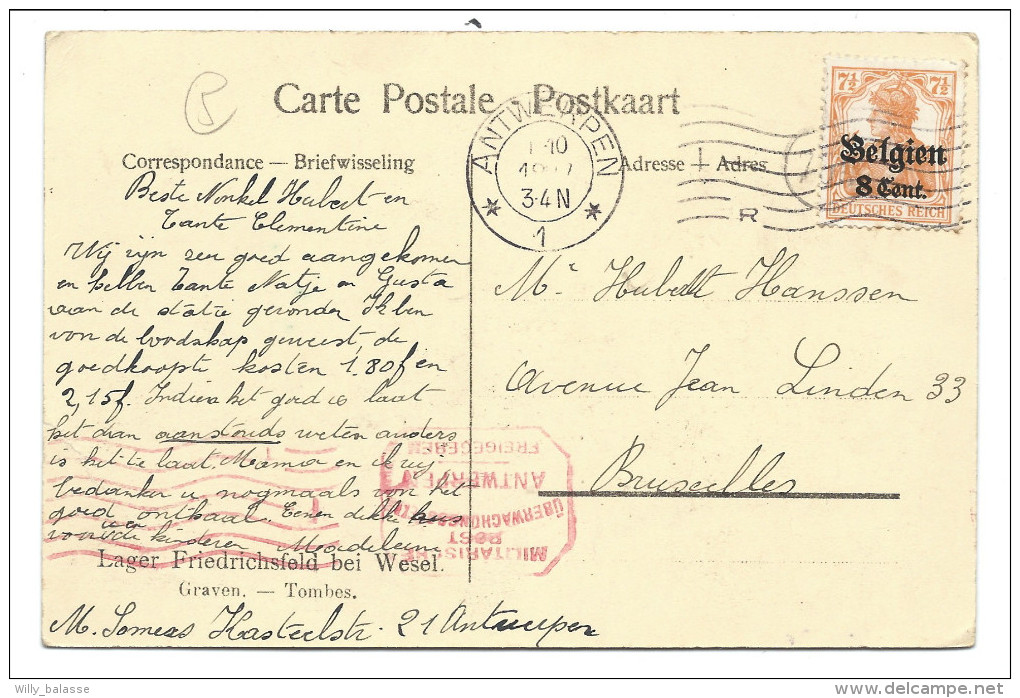 Carte Postale Postkaart
Correspondance — Briefwisseling
Adresse Adres
5
ANTWERPEN
10
3-4 N
1
R
7½ 7½
Belgien
8 Cent.
DEUTSCHES REICH
Beste Nonkel Hubert en
Tante Clementine
Wij zijn zeer goed aangekomen
en hebben Tante Natje en Gusta
aan de statie gevonden Ik ben
von de boodskap geweest, de
goedkoopste kosten 1.80f en
2,15f. Indien het goed is laat
het dan aanstonds weten anders
is het te laat. Mama en ik wij
bedanken u nogmaals von het
goed onthaal. Eenen dikke
voor de kinderen Madeleine
Mr Hubert Hanssen
Avenue Jean Linden 33
Bruxelles
MILITÄRISCHE
POST
ÜBERWACHUNGSSTELLE
ANTWERPEN
FREIGEGEBEN
Lager Friedrichsfeld bei Wesel.
Graven. — Tombes.
M. Somers Kasteelstr. 21 Antwerpen
Willy_balasse
delcampe.net